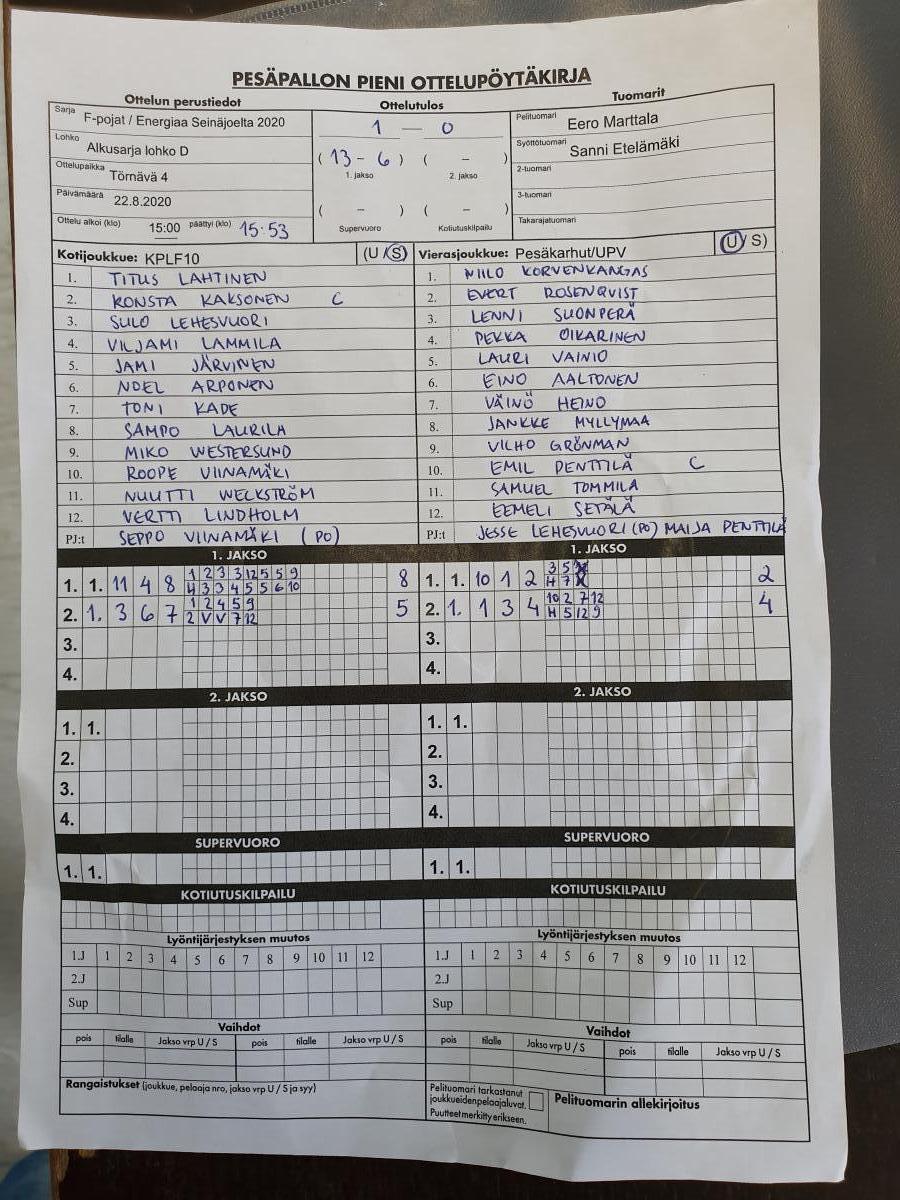 PESÄPALLON PIENI OTTELUPÖYTÄKIRJA
Ottelun perustiedot
Sarja F-pojat / Energiaa Seinäjoelta 2020
Lohko Alkusarja lohko D
Ottelupaikka Törnävä 4
Päivämäärä 22.8.2020
Ottelu alkoi (klo) 15:00 päättyi (klo) 15.53
Ottelutulos
1 — 0
( 13 - 6 ) ( - )
1. jakso 2. jakso
( - ) ( - )
Supervuoro Kotiutuskilpailu
Tuomarit
Pelituomari Eero Marttala
Syöttötuomari Sanni Etelämäki
2-tuomari
3-tuomari
Takarajatuomari
Kotijoukkue: KPLF10 (U / S)
1. TITUS LAHTINEN
2. KONSTA KAKSONEN C
3. SULO LEHESVUORI
4. VILJAMI LAMMILA
5. JAMI JÄRVINEN
6. NOEL ARPONEN
7. TONI KADE
8. SAMPO LAURILA
9. MIKO WESTERSUND
10. ROOPE VIINAMÄKI
11. NUUTTI WECKSTRÖM
12. VERTTI LINDHOLM
PJ:t SEPPO VIINAMÄKI (PO)
Vierasjoukkue: Pesäkarhut/UPV (U / S)
1. NIILO KORVENKANGAS
2. EVERT ROSENQVIST
3. LENNI SUONPERÄ
4. PEKKA OIKARINEN
5. LAURI VAINIO
6. EINO AALTONEN
7. VÄINÖ HEINO
8. JANKKE MYLLYMAA
9. VILHO GRÖNMAN
10. EMIL PENTTILÄ C
11. SAMUEL TOMMILA
12. EEMELI SETÄLÄ
PJ:t JESSE LEHESVUORI (PO) MAIJA PENTTILÄ
1. JAKSO
1. 1. 11 4 8 1 2 3 3 12 5 5 9 8
H 3 3 4 5 5 6 10
2. 1. 3 6 7 1 2 4 5 9 5
2 V V 7 12
3.
4.
2. JAKSO
1. 1.
2.
3.
4.
SUPERVUORO
1. 1.
KOTIUTUSKILPAILU
Lyöntijärjestyksen muutos
1.J 1 2 3 4 5 6 7 8 9 10 11 12
2.J
Sup
Vaihdot
pois tilalle Jakso vrp U / S pois tilalle Jakso vrp U / S
Rangaistukset (joukkue, pelaaja nro, jakso vrp U / S ja syy)
1. JAKSO
1. 1. 10 1 2 3 5 2
H 7
2. 1. 1 3 4 10 2 7 12 4
H 5 12 9
3.
4.
2. JAKSO
1. 1.
2.
3.
4.
SUPERVUORO
1. 1.
KOTIUTUSKILPAILU
Lyöntijärjestyksen muutos
1.J 1 2 3 4 5 6 7 8 9 10 11 12
2.J
Sup
Vaihdot
pois tilalle Jakso vrp U / S pois tilalle Jakso vrp U / S
Pelituomari tarkastanut
joukkueiden pelaajaluvat.
Puutteet merkitty erikseen.
Pelituomarin allekirjoitus